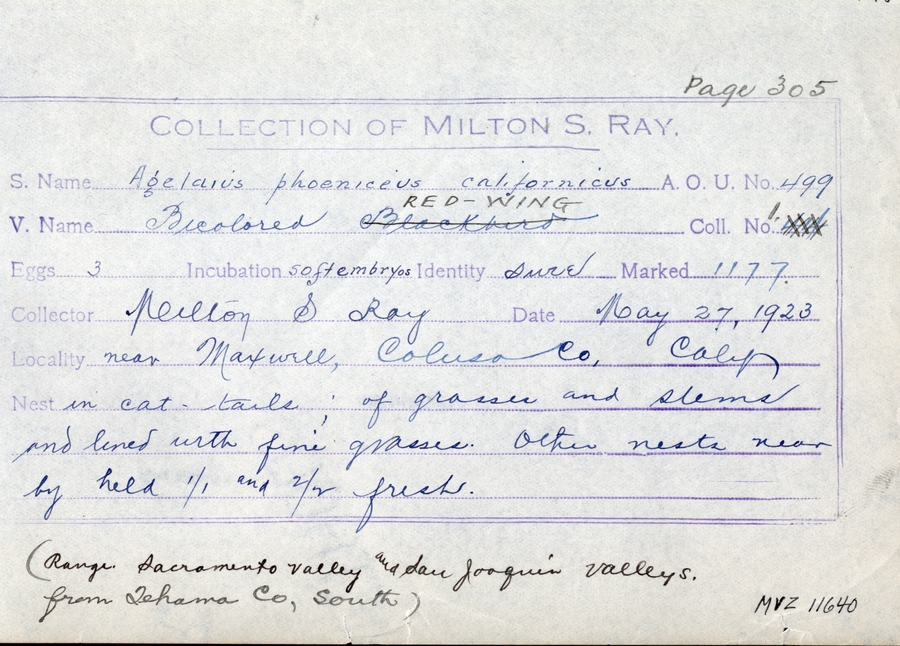 Page 305
COLLECTION OF MILTON S. RAY.
S. Name Agelaius phoeniceus californicus A. O. U. No. 499
RED-WING
V. Name Bicolored Blackbird Coll. No. 1.
Eggs 3 Incubation softembryos Identity sure Marked 1177.
Collector Milton S Ray Date May 27, 1923
Locality near Maxwell, Colusa Co, Calif
Nest in cat-tails ; of grasses and stems
and lined with fine grasses. Other nests near
by held 1/1 and 2/2 fresh.
(Range. Sacramento valley and San Joaquin valleys.
from Tehama Co, South)
MVZ 11640